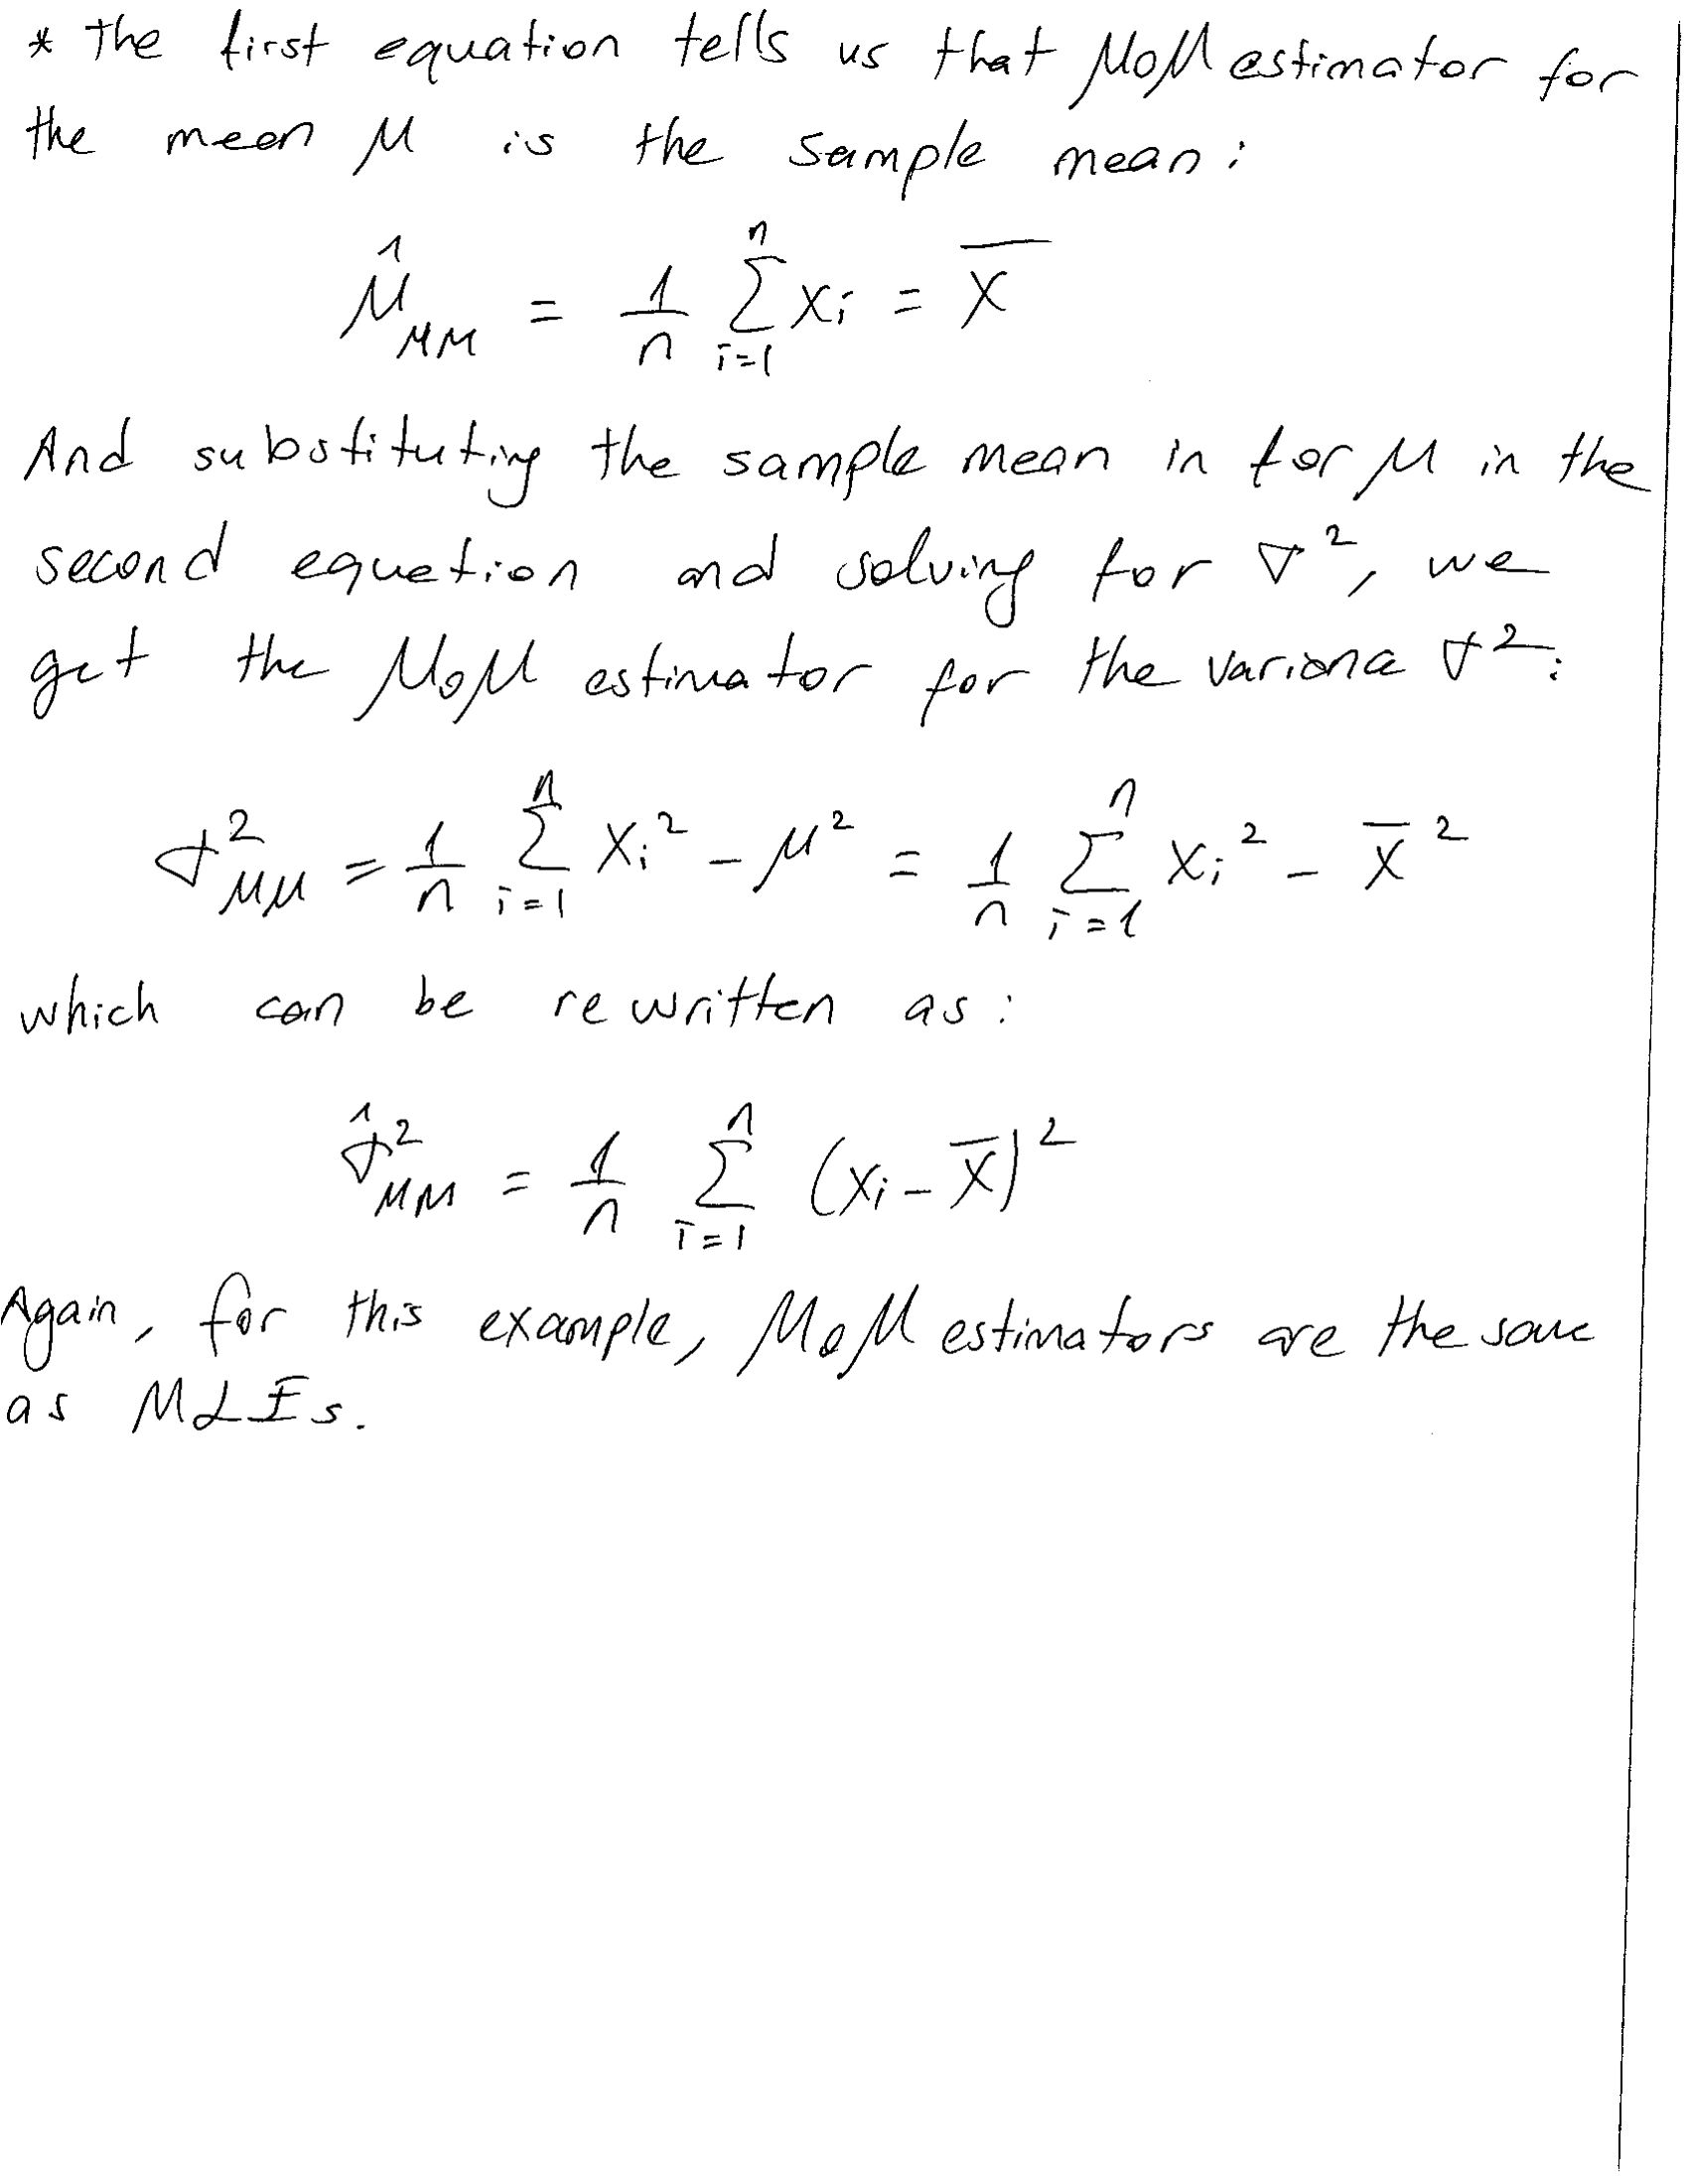 * The first equation tells us that MoM estimator for
the mean μ is the sample mean:
μ̂_MM = 1/n ∑_{i=1}^{n} xᵢ = X̄
And substituting the sample mean in for μ in the
second equation and solving for σ², we
get the MoM estimator for the variance σ²:
σ²_MM = 1/n ∑_{i=1}^{n} Xᵢ² - μ² = 1/n ∑_{i=1}^{n} Xᵢ² - X̄²
which can be rewritten as:
σ̂²_MM = 1/n ∑_{i=1}^{n} (xᵢ - X̄)²
Again, for this example, MoM estimators are the same
as MLEs.